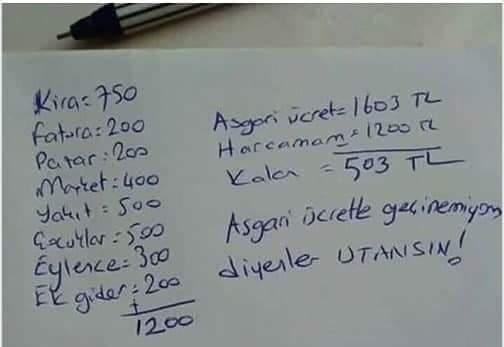 Kira = 750
Fatura = 200
Pazar : 200
Market = 400
Yakıt = 500
Çocuklar = 500
Eylence = 300
Ek gider = 200
+
1200
Asgari ücret = 1603 TL
Harcamam = 1200 TL
Kalan = 503 TL
Asgari ücretle geçinemiyom
diyenler UTANSIN!